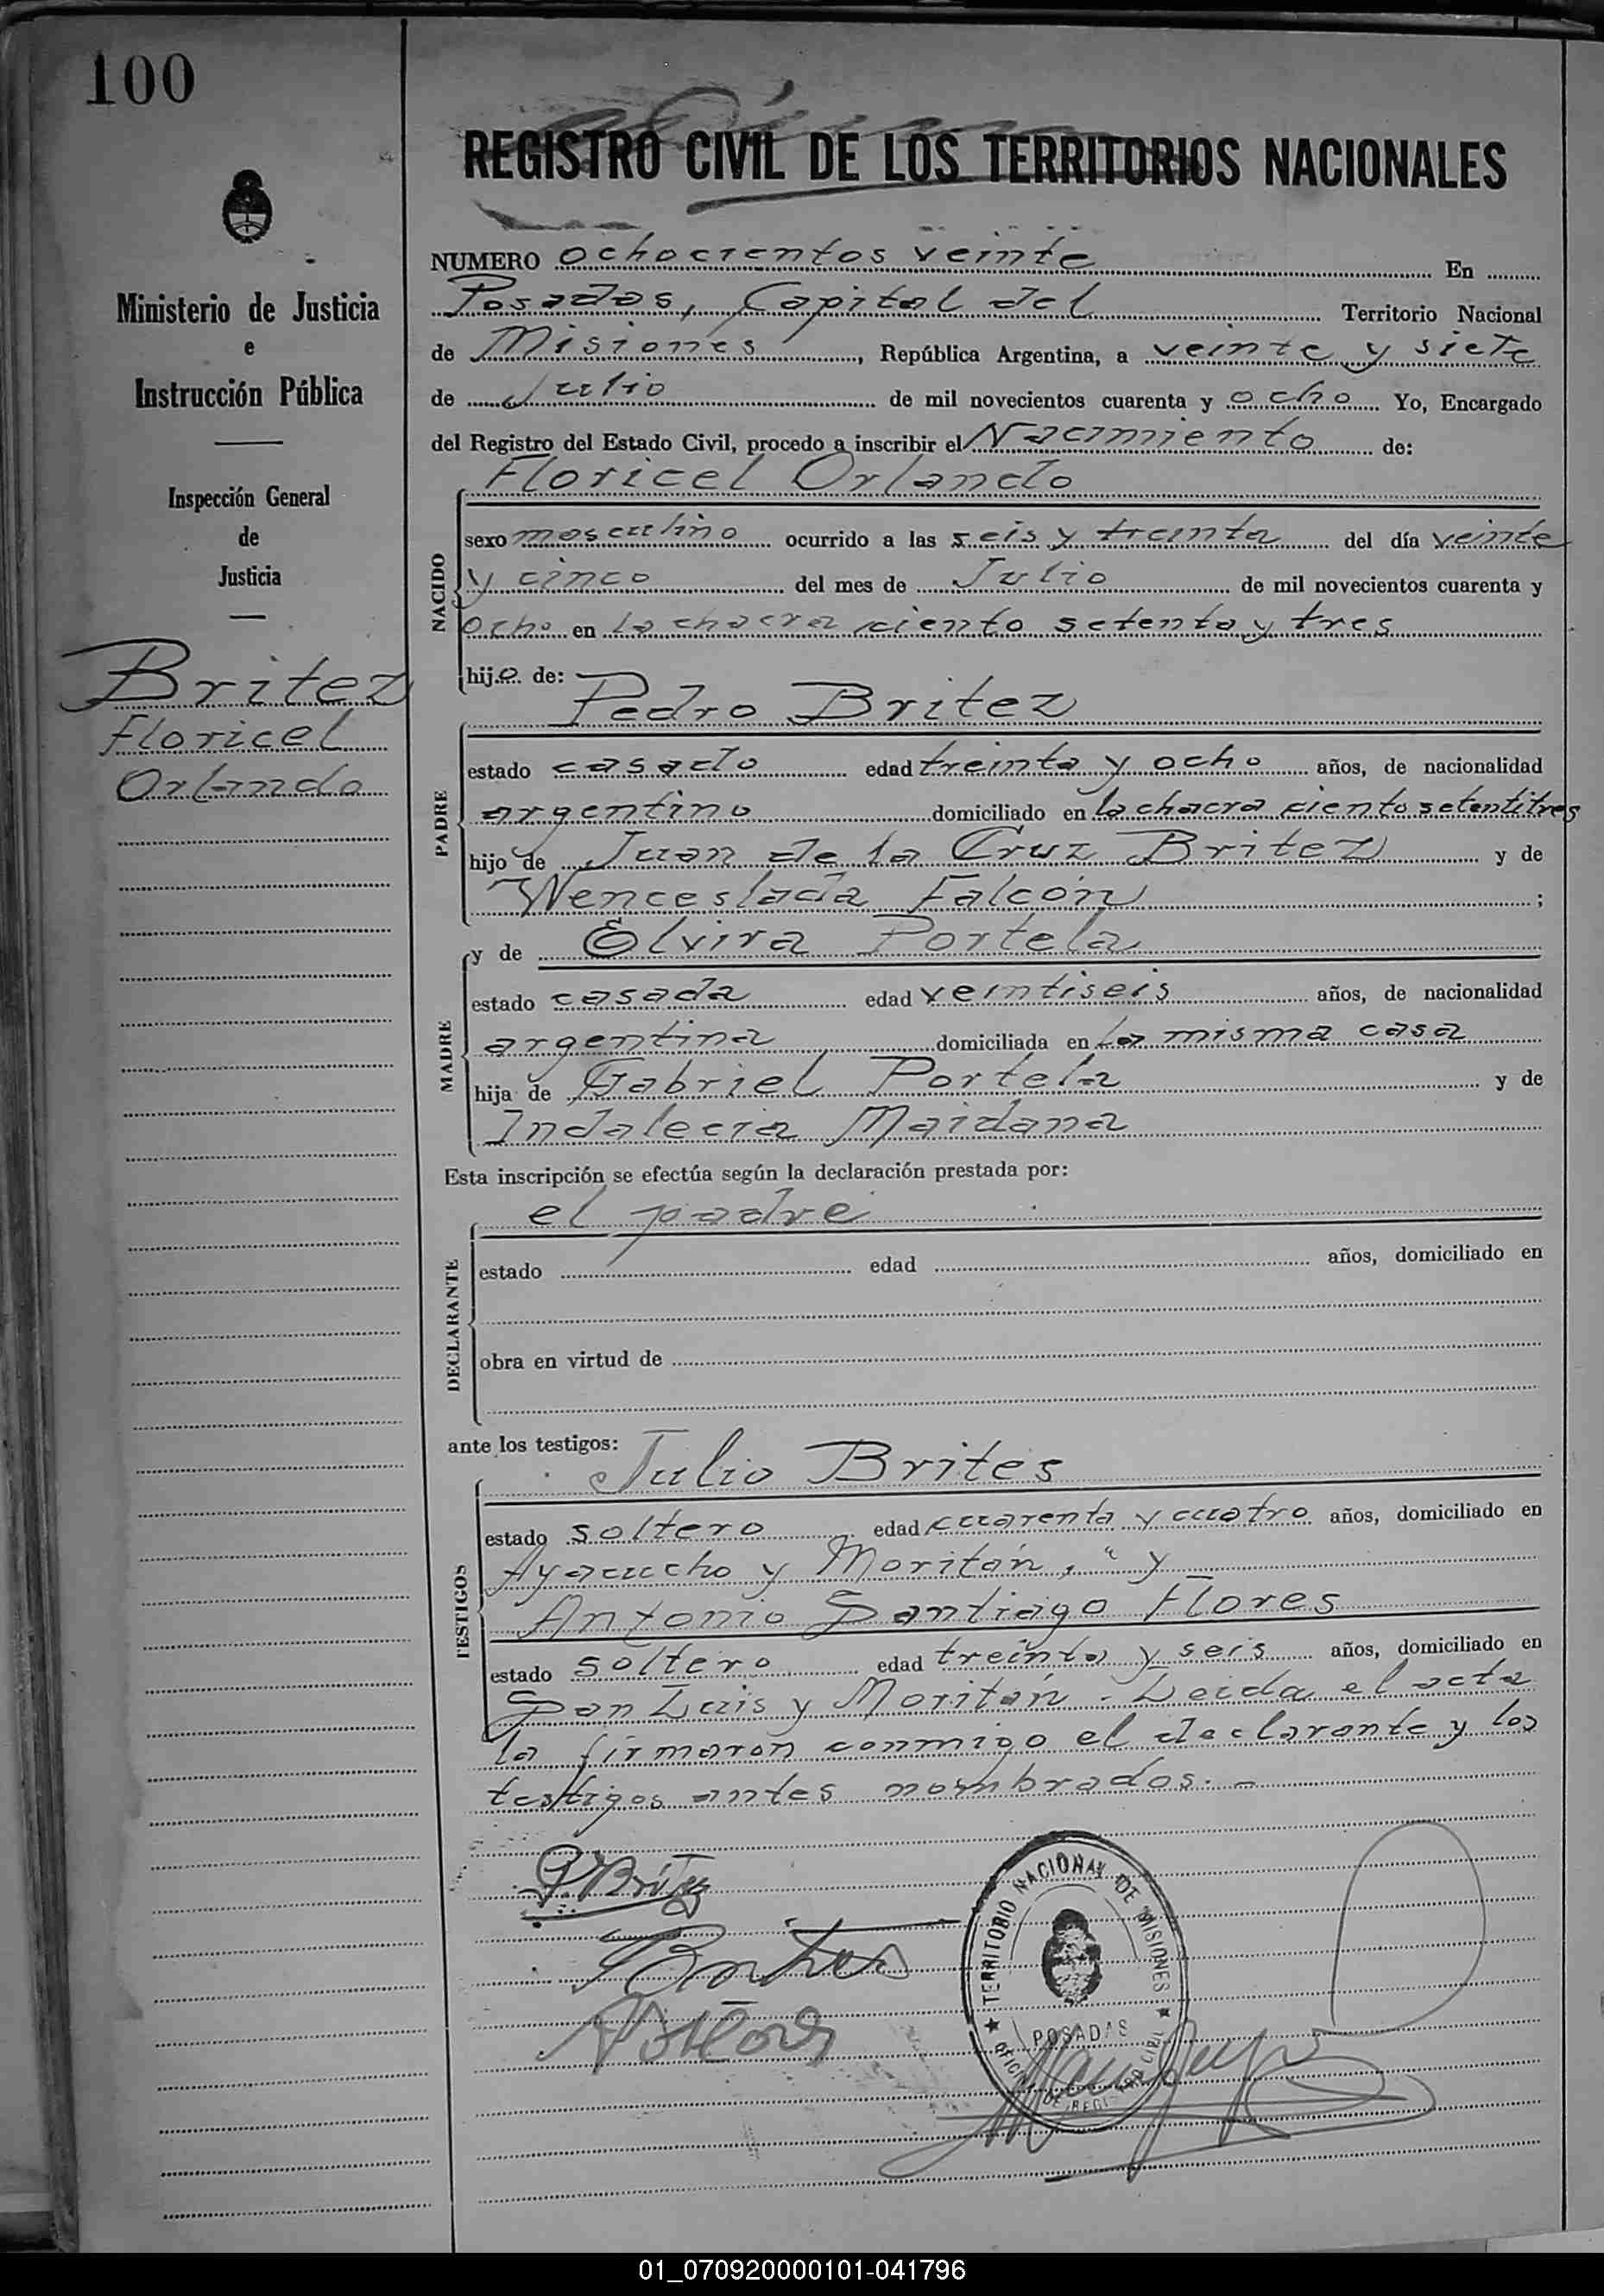 100
REGISTRO CIVIL DE LOS TERRITORIOS NACIONALES
Ministerio de Justicia
e
Instrucción Pública
Inspección General
de
Justicia
Britez
Floricel
Orlando
NUMERO ochocientos veinte En
Posadas, Capital del Territorio Nacional
de Misiones, República Argentina, a veinte y siete
de Julio de mil novecientos cuarenta y ocho Yo, Encargado
del Registro del Estado Civil, procedo a inscribir el Nacimiento de:
Floricel Orlando
NACIDO
sexo masculino ocurrido a las seis y treinta del día veinte
y cinco del mes de Julio de mil novecientos cuarenta y
ocho en la chacra ciento setenta y tres
hijo de:
Pedro Britez
PADRE
estado casado edad treinta y ocho años, de nacionalidad
argentino domiciliado en la chacra ciento setentitres
hijo de Juan de la Cruz Britez y de
Wenceslada Falcón ;
y de Elvira Portela
MADRE
estado casada edad veintiseis años, de nacionalidad
argentina domiciliada en la misma casa
hija de Gabriel Portela y de
Indalecia Maidana
Esta inscripción se efectúa según la declaración prestada por:
el padre
DECLARANTE
estado edad años, domiciliado en
obra en virtud de
ante los testigos:
Julio Brites
TESTIGOS
estado soltero edad cuarenta y cuatro años, domiciliado en
Ayacucho y Moritán, " y
Antonio Santiago Flores
estado soltero edad treinta y seis años, domiciliado en
San Luis y Moritán - Leida el acta
la firmaron conmigo el declarante y los
testigos antes nombrados. -
P. Britez
Brites
TERRITORIO NACIONAL DE MISIONES
POSADAS
OFICINA DE REGISTRO CIVIL
01_070920000101-041796